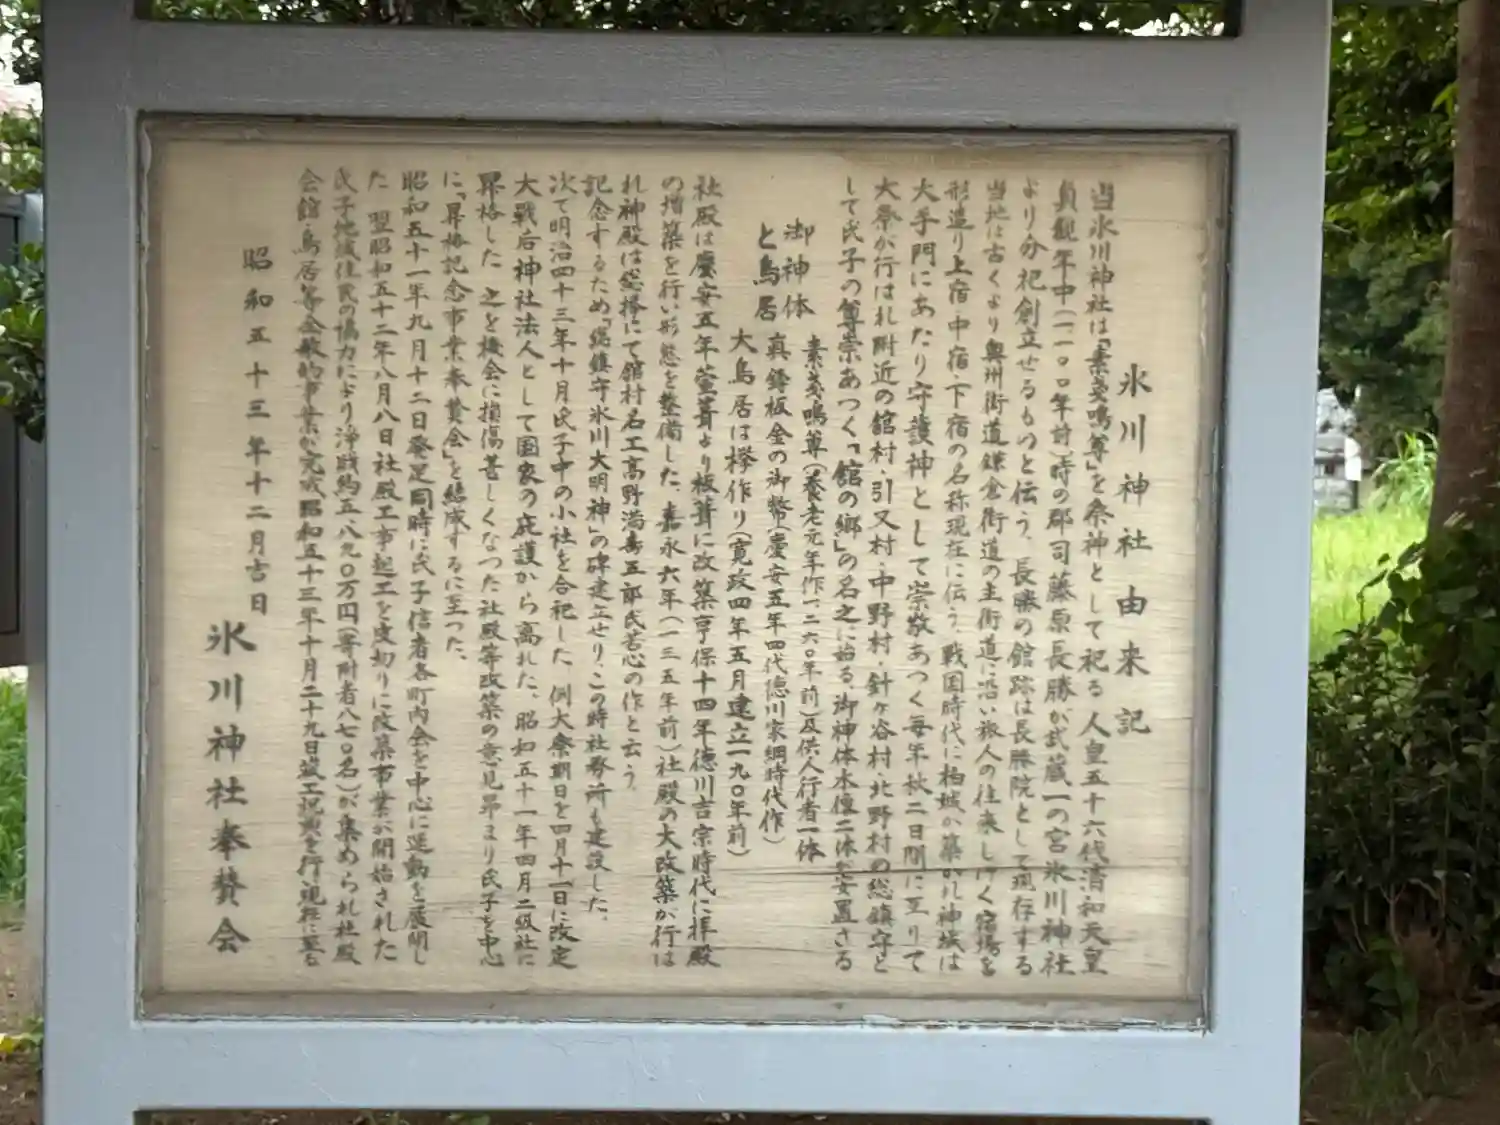 氷川神社由来記
当氷川神社は「素戔嗚尊」を祭神として祀る人皇五十六代清和天皇
貞観年中(一一〇〇年前)時の郡司藤原長勝が武蔵一の宮氷川神社
より分祀創立せるものと伝う、長勝の館跡は長勝院として現存する
当地は古くより奥州街道鎌倉街道の主街道に沿い旅人の往来しげく宿場を
形造り上宿・中宿・下宿の名称現在に伝う、戦国時代に柏城が築かれ神域は
大手門にあたり守護神として崇敬あつく毎年秋二日間に亙りて
大祭が行はれ附近の舘村・引又村・中野村・針ヶ谷村・北野村の総鎮守と
して氏子の尊崇あつく「館の郷」の名之に始る、御神体木像二体が安置さる
御神体 素戔嗚尊(養老元年作一二六〇年前)及供人行者一体
と鳥居 真鍮板金の御幣(慶安五年四代徳川家綱時代作)
大鳥居は欅作り(寛政四年五月建立一九〇年前)
社殿は慶安五年萱葺より板葺に改築享保十四年徳川吉宗時代に拝殿
の増築を行い形態を整備した、嘉永六年(一三五年前)社殿の大改築が行は
れ神殿は総欅にて舘村名工高野満寿五郎氏苦心の作と云う、
記念するため「総鎮守氷川大明神」の碑建立せり、この時社務所も建設した、
次て明治四十三年十月氏子中の小社を合祀した、例大祭期日を四月十一日に改定
大戦后神社法人として国家の庇護から離れた、昭和五十一年四月二級社に
昇格した之を機会に損傷甚しくなつた社殿等改築の意見昂まり氏子を中心
に「昇格記念事業奉賛会」を結成するに至った、
昭和五十一年九月十二日発足同時に氏子信者各町内会を中心に運動を展開し
た 翌昭和五十二年八月八日社殿工事起工を皮切りに改築事業が開始された
氏子地域住民の協力により浄財約五八九〇万円(寄附者八七〇名)が集められ社殿
会館・鳥居等全般的事業が完成昭和五十三年十月二十九日竣工祝典を行い現在に至る
昭和五十三年十二月吉日
氷川神社奉賛会